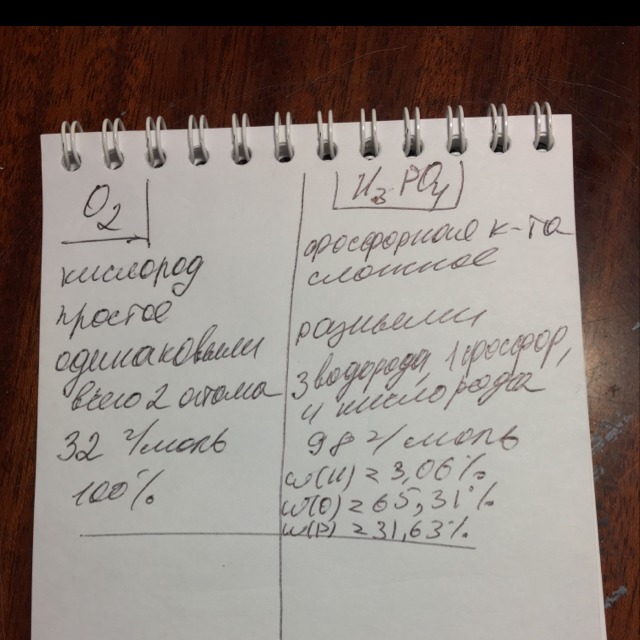 O2
кислород
простое
одинаковыми
всего 2 атома
32 г/моль
100%
H3PO4
фосфорная к-та
сложное
разными
3 водорода, 1 фосфор,
4 кислорода
98 г/моль
w(H) = 3,06%
w(O) = 65,31%
w(P) = 31,63%